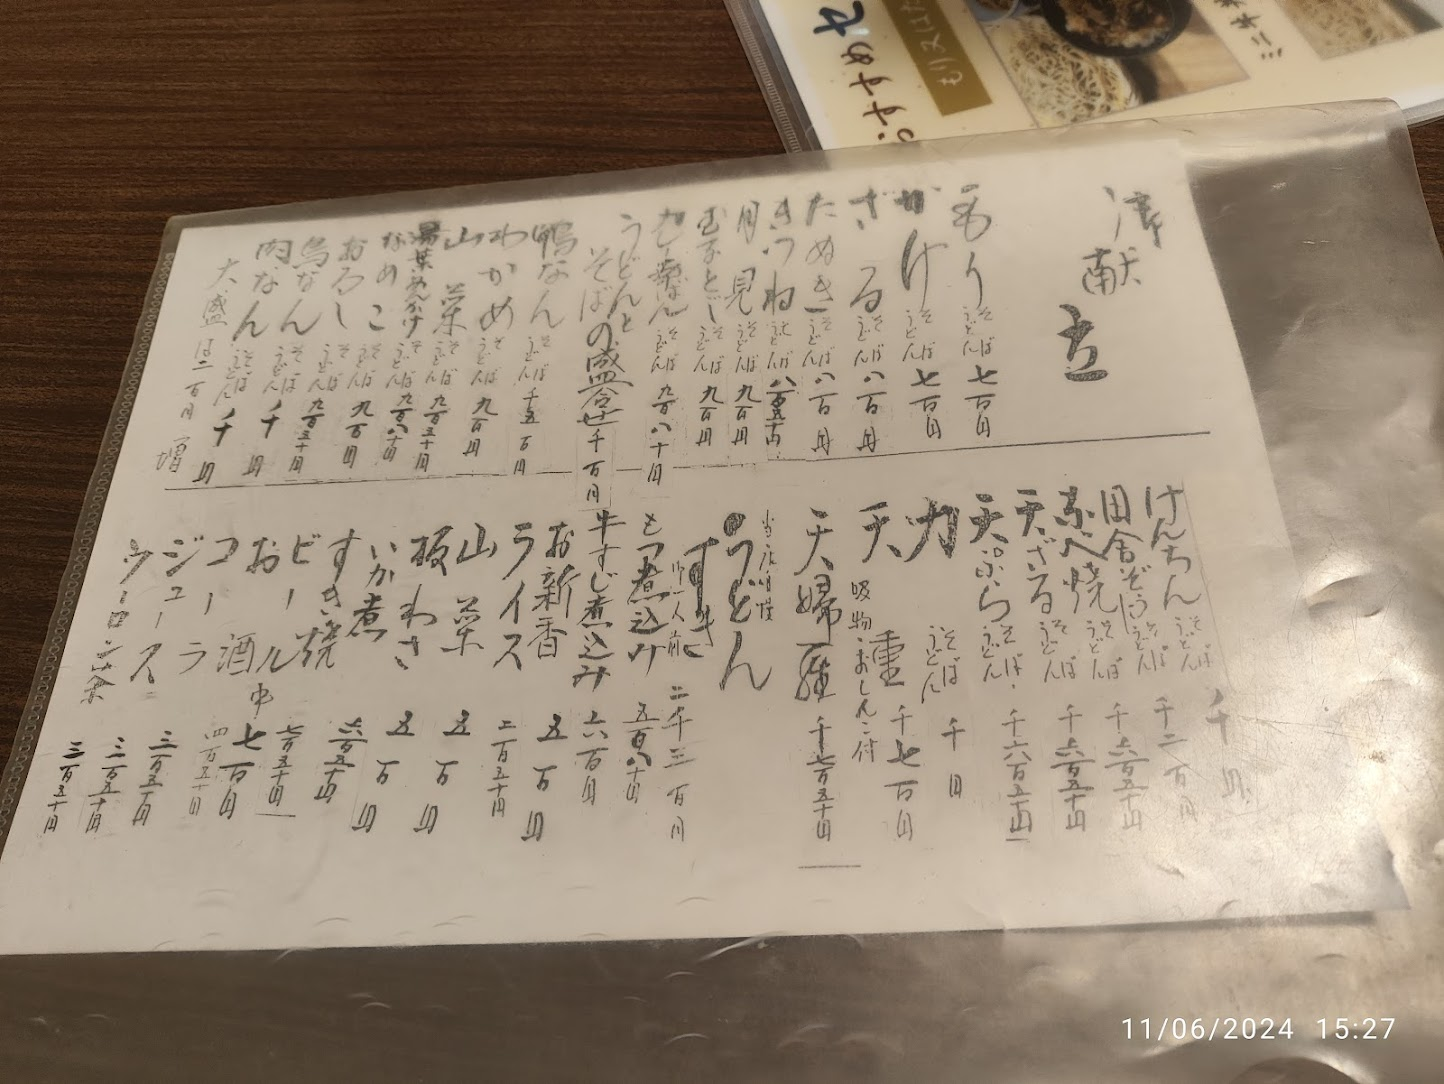 献立
もり そば うどん 七百円
かけ そば うどん 七百円
ざる そば うどん 八百円
たぬき そば うどん 八百円
きつね そば うどん 八百五十円
月見 そば うどん 九百円
玉子とじ そば うどん 九百円
そば うどん 九百八十円
うどんと そばの盛合せ 千百円
鴨なん そば うどん 千五百円
わかめ そば うどん 九百円
山菜 そば うどん 九百五十円
湯葉あんかけ そば うどん 九百八十円
なめこ そば うどん 九百円
おろし そば うどん 九百五十円
鳥なん そば うどん 千円
肉なん そば うどん 千円
大盛は二百円増
けんちん そば うどん 千円
田舎ぞうに そば うどん 千二百円
なべ焼 そば うどん 千六百五十円
天ざる そば うどん 千六百五十円
天ぷら そば うどん 千六百五十円
力 そば うどん 千円
天重 吸物・おしんこ付 千七百円
天婦羅 千七百五十円
当店自慢
うどんすき 一人前 二千三百円
もつ煮込み 五百八十円
牛すじ煮込み 六百円
お新香 五百円
ライス 二百五十円
山菜 五百円
板わさ 五百円
いか煮 六百五十円
すき焼
ビール 中 七百五十円
お酒 七百円
四百五十円
コーラ 三百五十円
ジュース 三百五十円
ウーロン茶 三百五十円
おすすめセ
もり又は
ミニ
11/06/2024 15:27